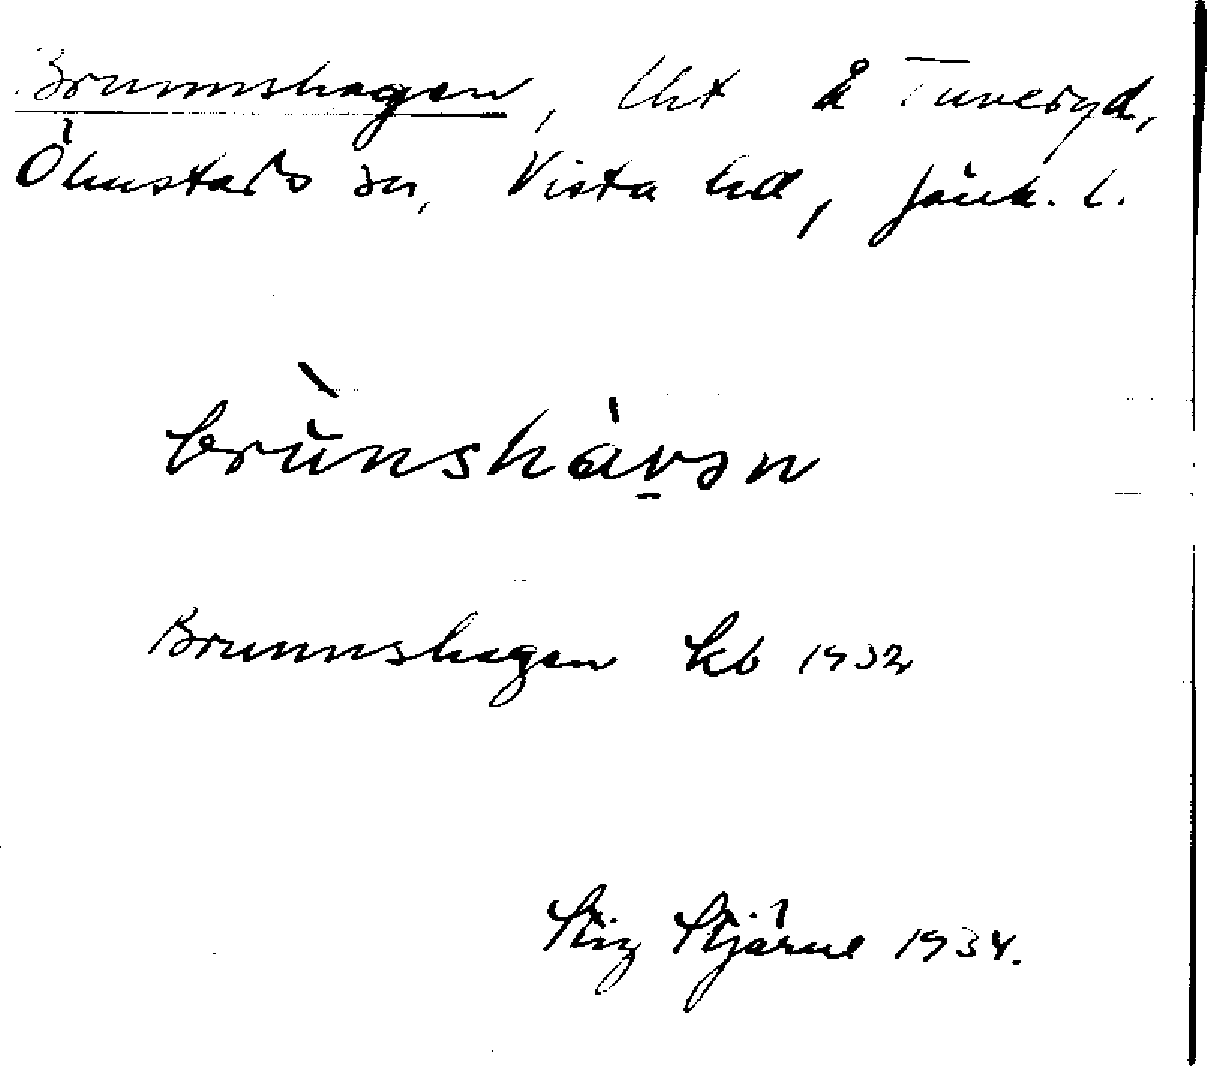 Brunnshagen, lht å Tuveryd,
Ölmstads sn, Vista hd, Jönk. l.
brùnshàvən
Brunnshagen kb 1932
Stig Stjärne 1934.